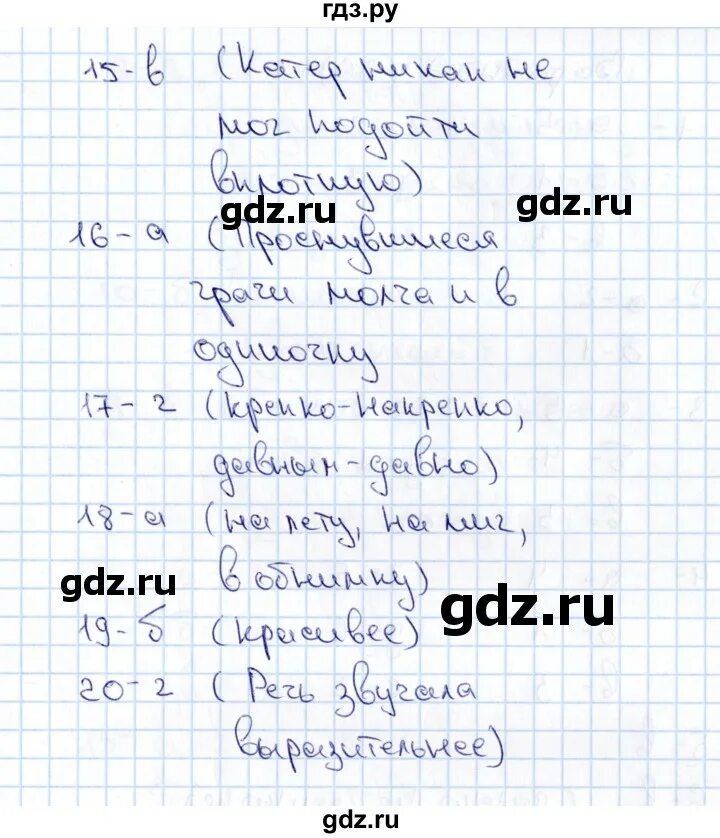 гдз.ру
15-в (Катер никак не
мог подойти
вплотную)
gdz.ru
gdz.ru
16-а (Проснувшиеся
грачи молча и в
одиночку
17-г (крепко-накрепко,
давным-давно)
18-а (на лету, на миг,
в обнимку)
gdz.ru
gdz.ru
19-б (красивее)
20-г (Речь звучала
выразительнее)
gdz.ru